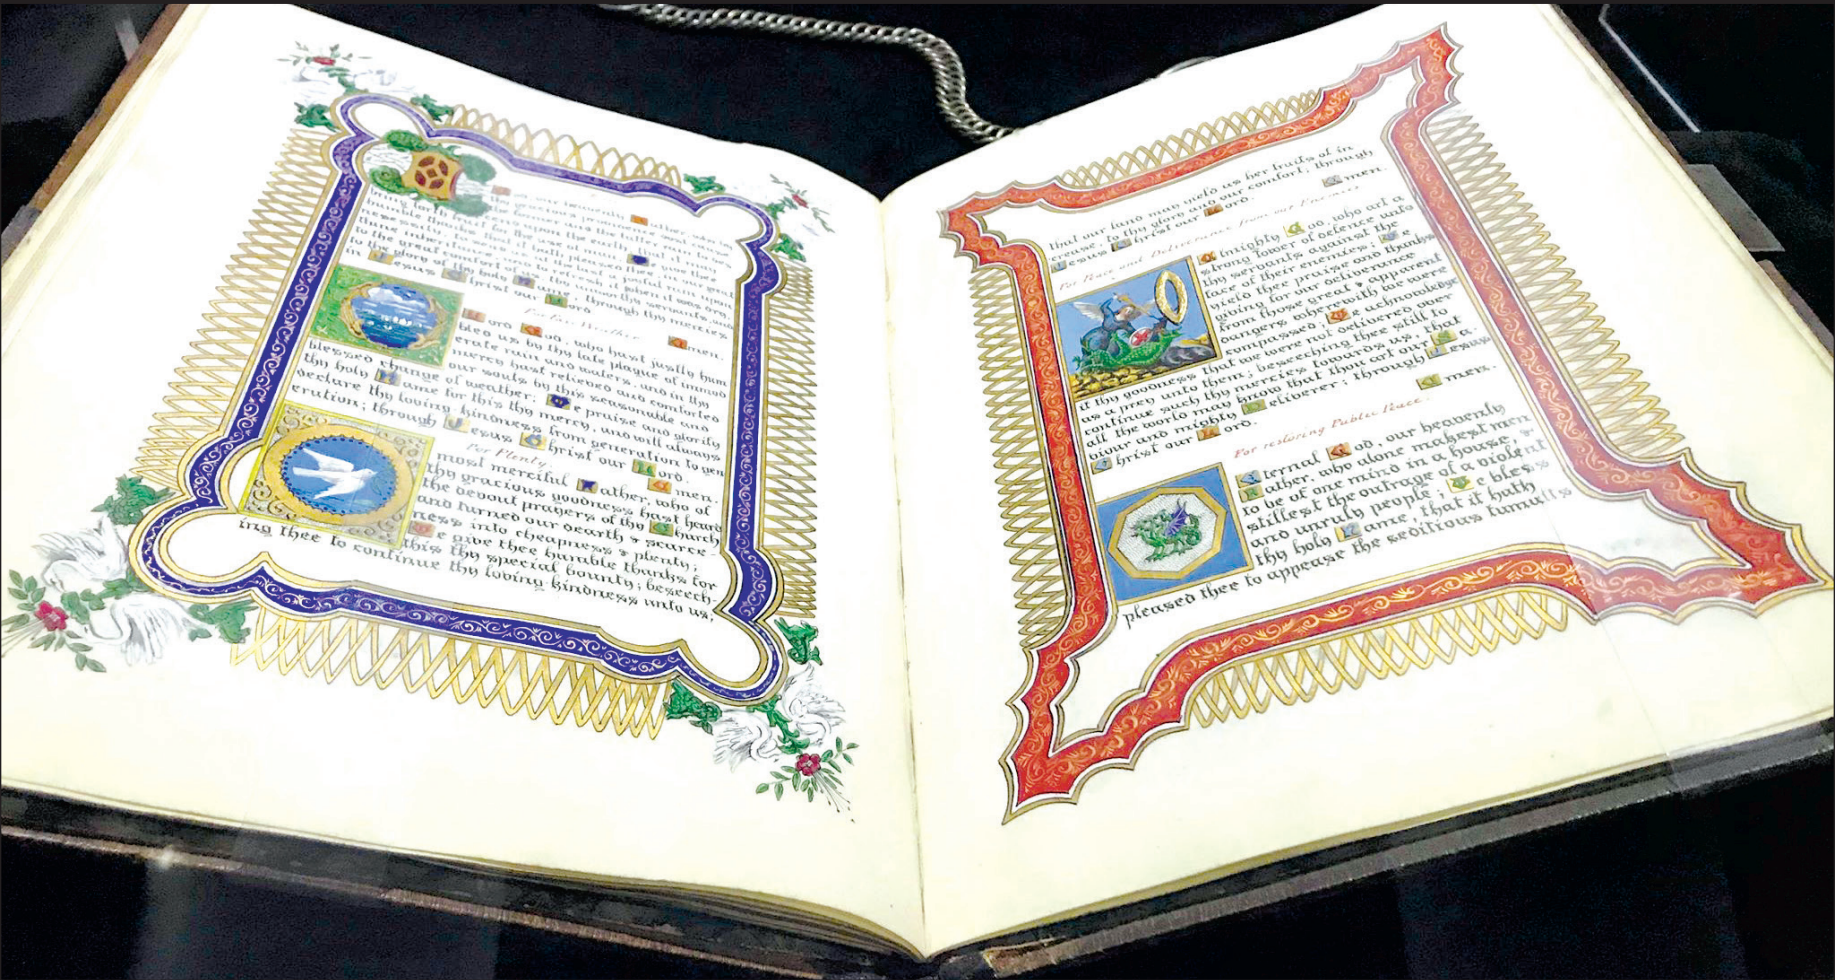 O God our heavenly Father, who by
thy gracious providence dost cause
the former and the latter rain to
descend upon the earth, that it may
bring forth fruit for the use of man; We give thee
humble thanks that it hath pleased thee, in our great
necessity, to send us at the last a joyful rain upon
thine inheritance, and to refresh it when it was dry,
to the great comfort of us thy unworthy servants, and
to the glory of thy holy Name; through thy mercies
in Jesus Christ our Lord. Amen.
For Fair Weather.
Lord God, who hast justly hum
bled us by thy late plague of immod
erate rain and waters, and in thy
mercy hast relieved and comforted
our souls by this seasonable and
blessed change of weather; We praise and glorify
thy holy Name for this thy mercy, and will always
declare thy loving kindness from generation to gen
eration; through Jesus Christ our Lord. Amen.
For Plenty.
most merciful Father, who of
thy gracious goodness hast heard
the devout prayers of thy Church
and turned our dearth & scarce
ness into cheapness & plenty;
We give thee humble thanks for
this thy special bounty; beseech-
ing thee to continue thy loving-kindness unto us,
that our land may yield us her fruits of in
crease, to thy glory and our comfort; through
Jesus Christ our Lord. Amen.
For Peace and Deliverance from our Enemies
Almighty God, who art a
strong tower of defence unto
thy servants against the
face of their enemies; We
yield thee praise and thanks
giving for our deliverance
from those great & apparent
dangers wherewith we were
compassed; We acknowledge
it thy goodness that we were not delivered over
as a prey unto them; beseeching thee still to
continue such thy mercies towards us, that
all the world may know that thou art our Sa-
viour and mighty Deliverer; through Jesus
Christ our Lord. Amen.
For restoring Public Peace:
Eternal God, our heavenly
Father, who alone makest men
to be of one mind in a house, &
stillest the outrage of a violent
and unruly people; We bless
thy holy Name, that it hath
pleased thee to appease the seditious tumults